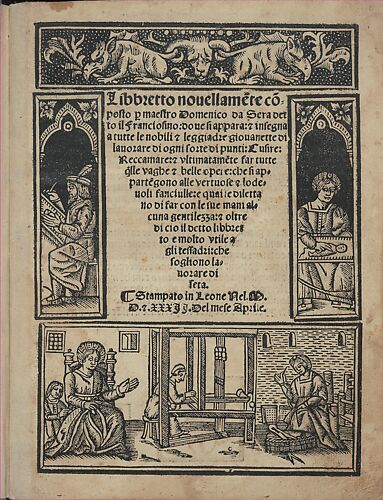 Libbretto nouellamēte cō-
posto p maestro Domenico da Sera det
to il Franciosino: doue si apparaː ⁊ insegna
a tutte le nobili ⁊ leggiadre giouanette di
lauorare di ogni sorte di punti: Cusire:
Reccamare: ⁊ vltimatamēte far tutte
q̄lle vaghe ⁊ belle opere: che si ap-
partēgono alle vertuose ⁊ lode-
uoli fanciullere qual e diletta
no di far con le sue mani al
cuna gentilezza: ⁊ oltre
di cio il detto libbret
to e molto vtile a
gli tessadri: che
sogliono la-
uorare di
seta.
¶ Stampato in Leone Nel. M.
D. ⁊. XXXII. Del mese Aprile.